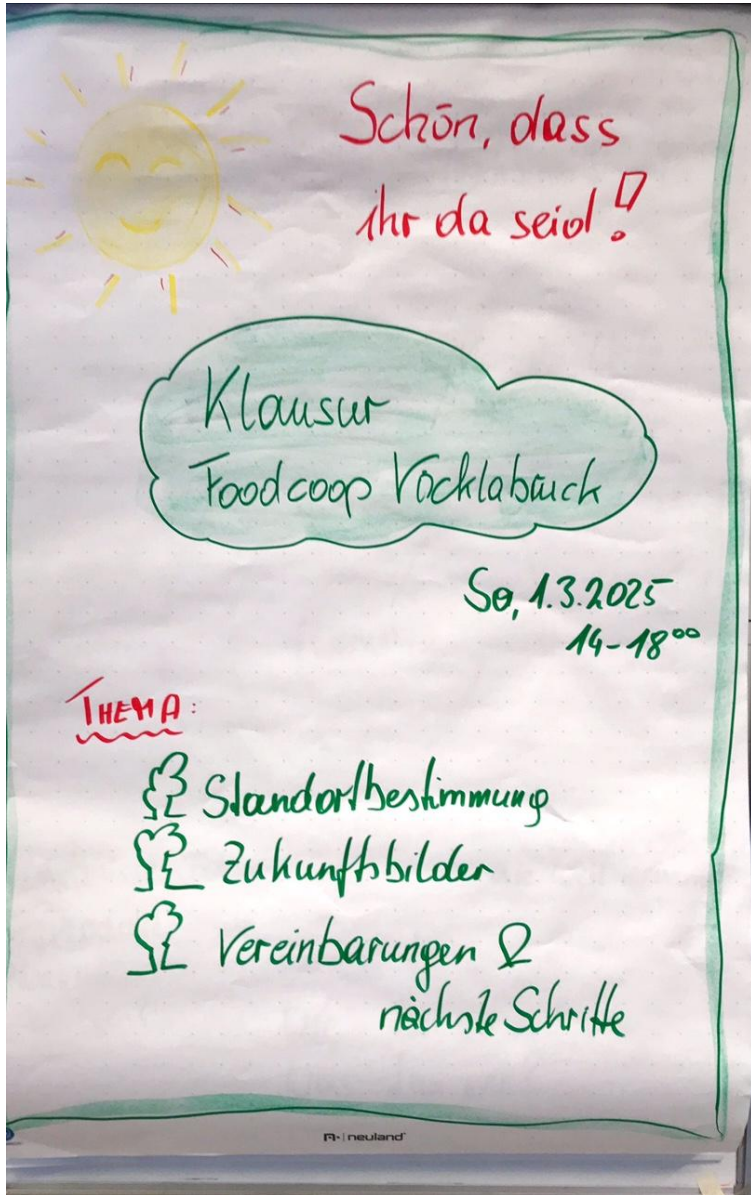 Schön, dass
ihr da seid!
Klausur
Foodcoop Vöcklabruck
1.3.2025
14-18⁰⁰
THEMA:
Standortbestimmung
Zukunftsbilder
Vereinbarungen &
nächste Schritte
neuland